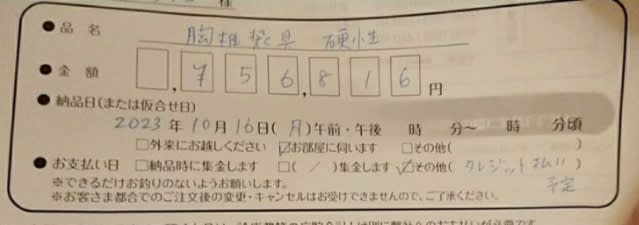 様
●品名 胸椎装具 硬性
●金額 ¥56,816円
●納品日(または仮合せ日)
2023年10月16日(月)午前・午後 時 分〜 時 分頃
□外来にお越しください ☑お部屋に伺います □その他( )
●お支払い日 □納品時に集金します □( / )集金します ☑その他(クレジット払い 予定)
※できるだけお釣りのないようお願いします。
※お客さま都合でのご注文後の変更・キャンセルはお受けできませんので、ご了承ください。